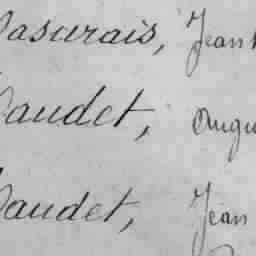 asurais, Jean
audet, Augu
audet, Jean